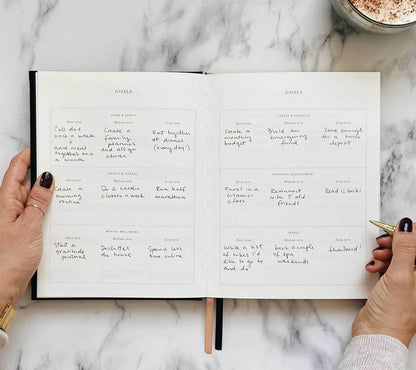 GOALS
HOME & FAMILY
Short term
Medium term
Long term
Call dad
once a week
+
have meal
together once
a month
Create a
family
planner
and assign
chores
Eat together
at dinner
(every day!)
HEALTH & FITNESS
Short term
Medium term
Long term
Create a
morning
routine
Do 2 cardio
classes a week
Run half
marathon
MENTAL WELL-BEING
Short term
Medium term
Long term
Start a
gratitude
journal
Declutter
the house
Spend less
time online
GOALS
CAREER & FINANCES
Short term
Medium term
Long term
Create a
monthly
budget
Build an
emergency
fund
Save enough
for a home
deposit
PERSONAL DEVELOPMENT
Short term
Medium term
Long term
Enrol in a
ceramics
class
Reconnect
with 5 old
friends
Read 12 books!
TRAVEL
Short term
Medium term
Long term
Write a list
of hikes I'd
like to go to
and do
book a couple
of spa
weekends
Thailand!